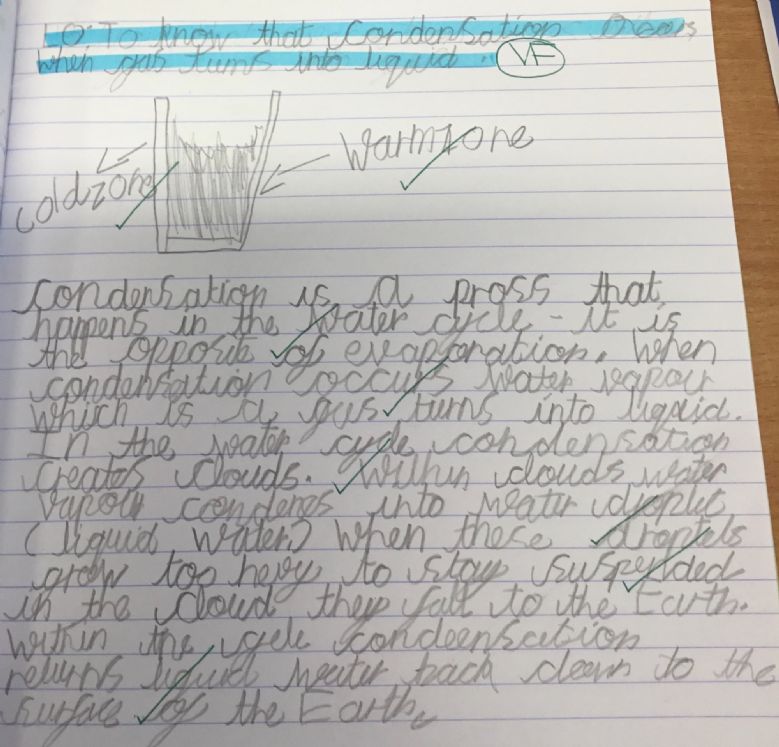 LO: To know that condensation Occurs
when gas turns into liquid. VF
Warmzone
coldzone
condensation is a pross that
happens in the water cycle - it is
the opposite of evaporation. When
condensation occurs water vapour
which is a gas turns into liquid.
In the water cycle condensation
creates clouds. Within clouds water
vapour condens into water droplet
(liquid water) when these droptels
grow too hevy to stay suspended
in the cloud they fall to the Earth.
Within the cycle condeensation
returns liquid water back down to the
surface of the Earth.